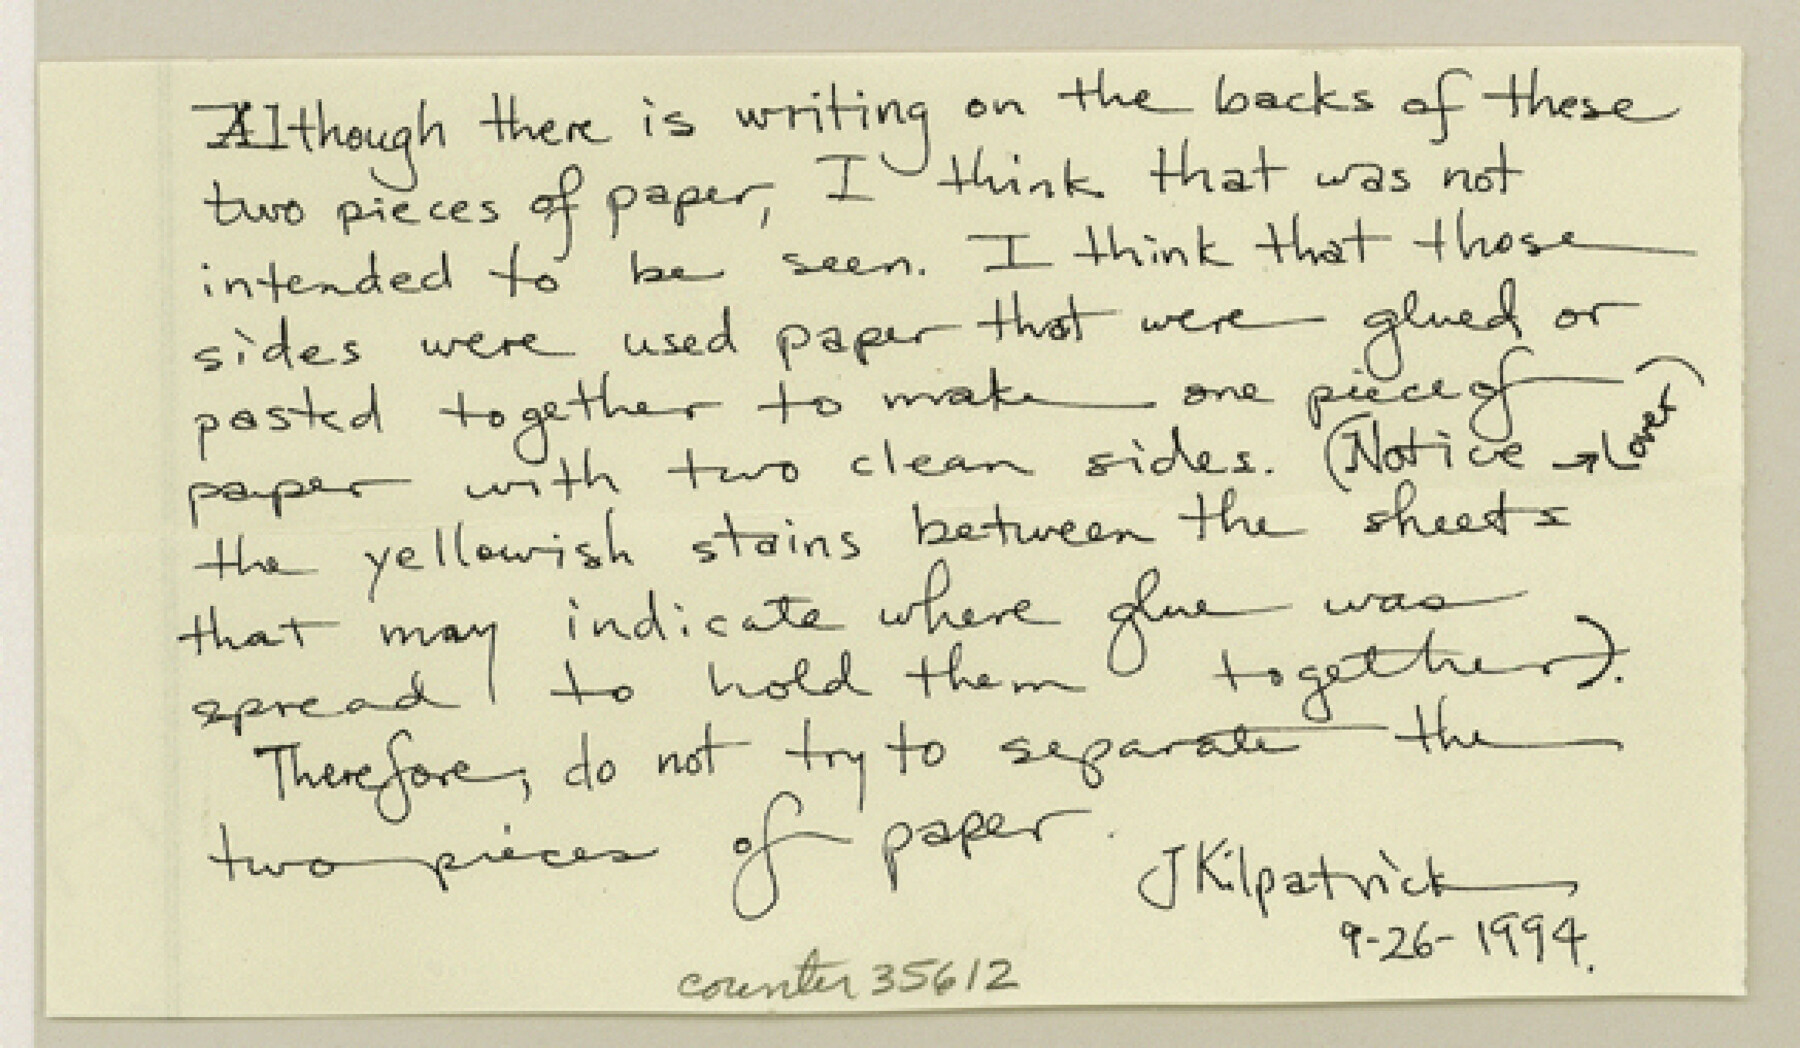 Although there is writing on the backs of these
two pieces of paper, I think that was not
intended to be seen. I think that those
sides were used paper that were glued or
pasted together to make one piece of
paper with two clean sides. (Notice → (over)
the yellowish stains between the sheets
that may indicate where glue was
spread to hold them together).
Therefore, do not try to separate the
two pieces of paper.
J Kilpatrick
9-26-1994.
counter 35612